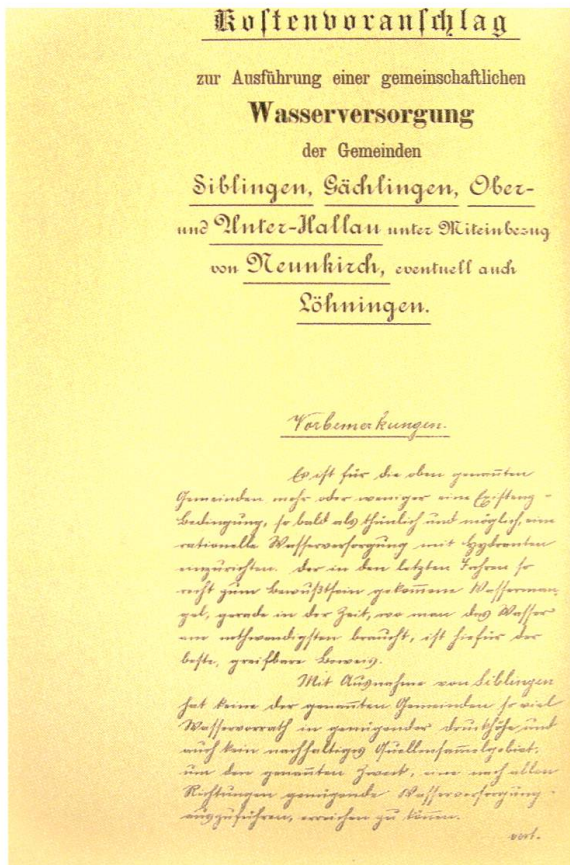 Kostenvoranschlag
zur Ausführung einer gemeinschaftlichen
Wasserversorgung
der Gemeinden
Siblingen, Gächlingen, Ober-
und Unter-Hallau unter Miteinbezug
von Neunkirch, eventuell auch
Löhningen.
Vorbemerkungen.
Es ist für die oben genannten
Gemeinden mehr oder weniger eine Existenz-
bedingung, so bald als thunlich und möglich, eine
rationelle Wasserversorgung mit Hydranten
einzurichten. Der in den letzten Jahren so
recht zum Bewußtsein gekommene Wasserman-
gel, gerade in der Zeit, wo man das Wasser
am nothwendigsten braucht, ist hiefür der
beste, greifbare Beweis.
Mit Ausnahme von Siblingen
hat keine der genannten Gemeinden so viel
Wasservorrath in genügender Druckhöhe und
auch kein nachhaltiges Quellensammelgebiet,
um den genannten Zweck, eine nach allen
Richtungen genügende Wasserversorgung
auszuführen, erreichen zu können.
vert.